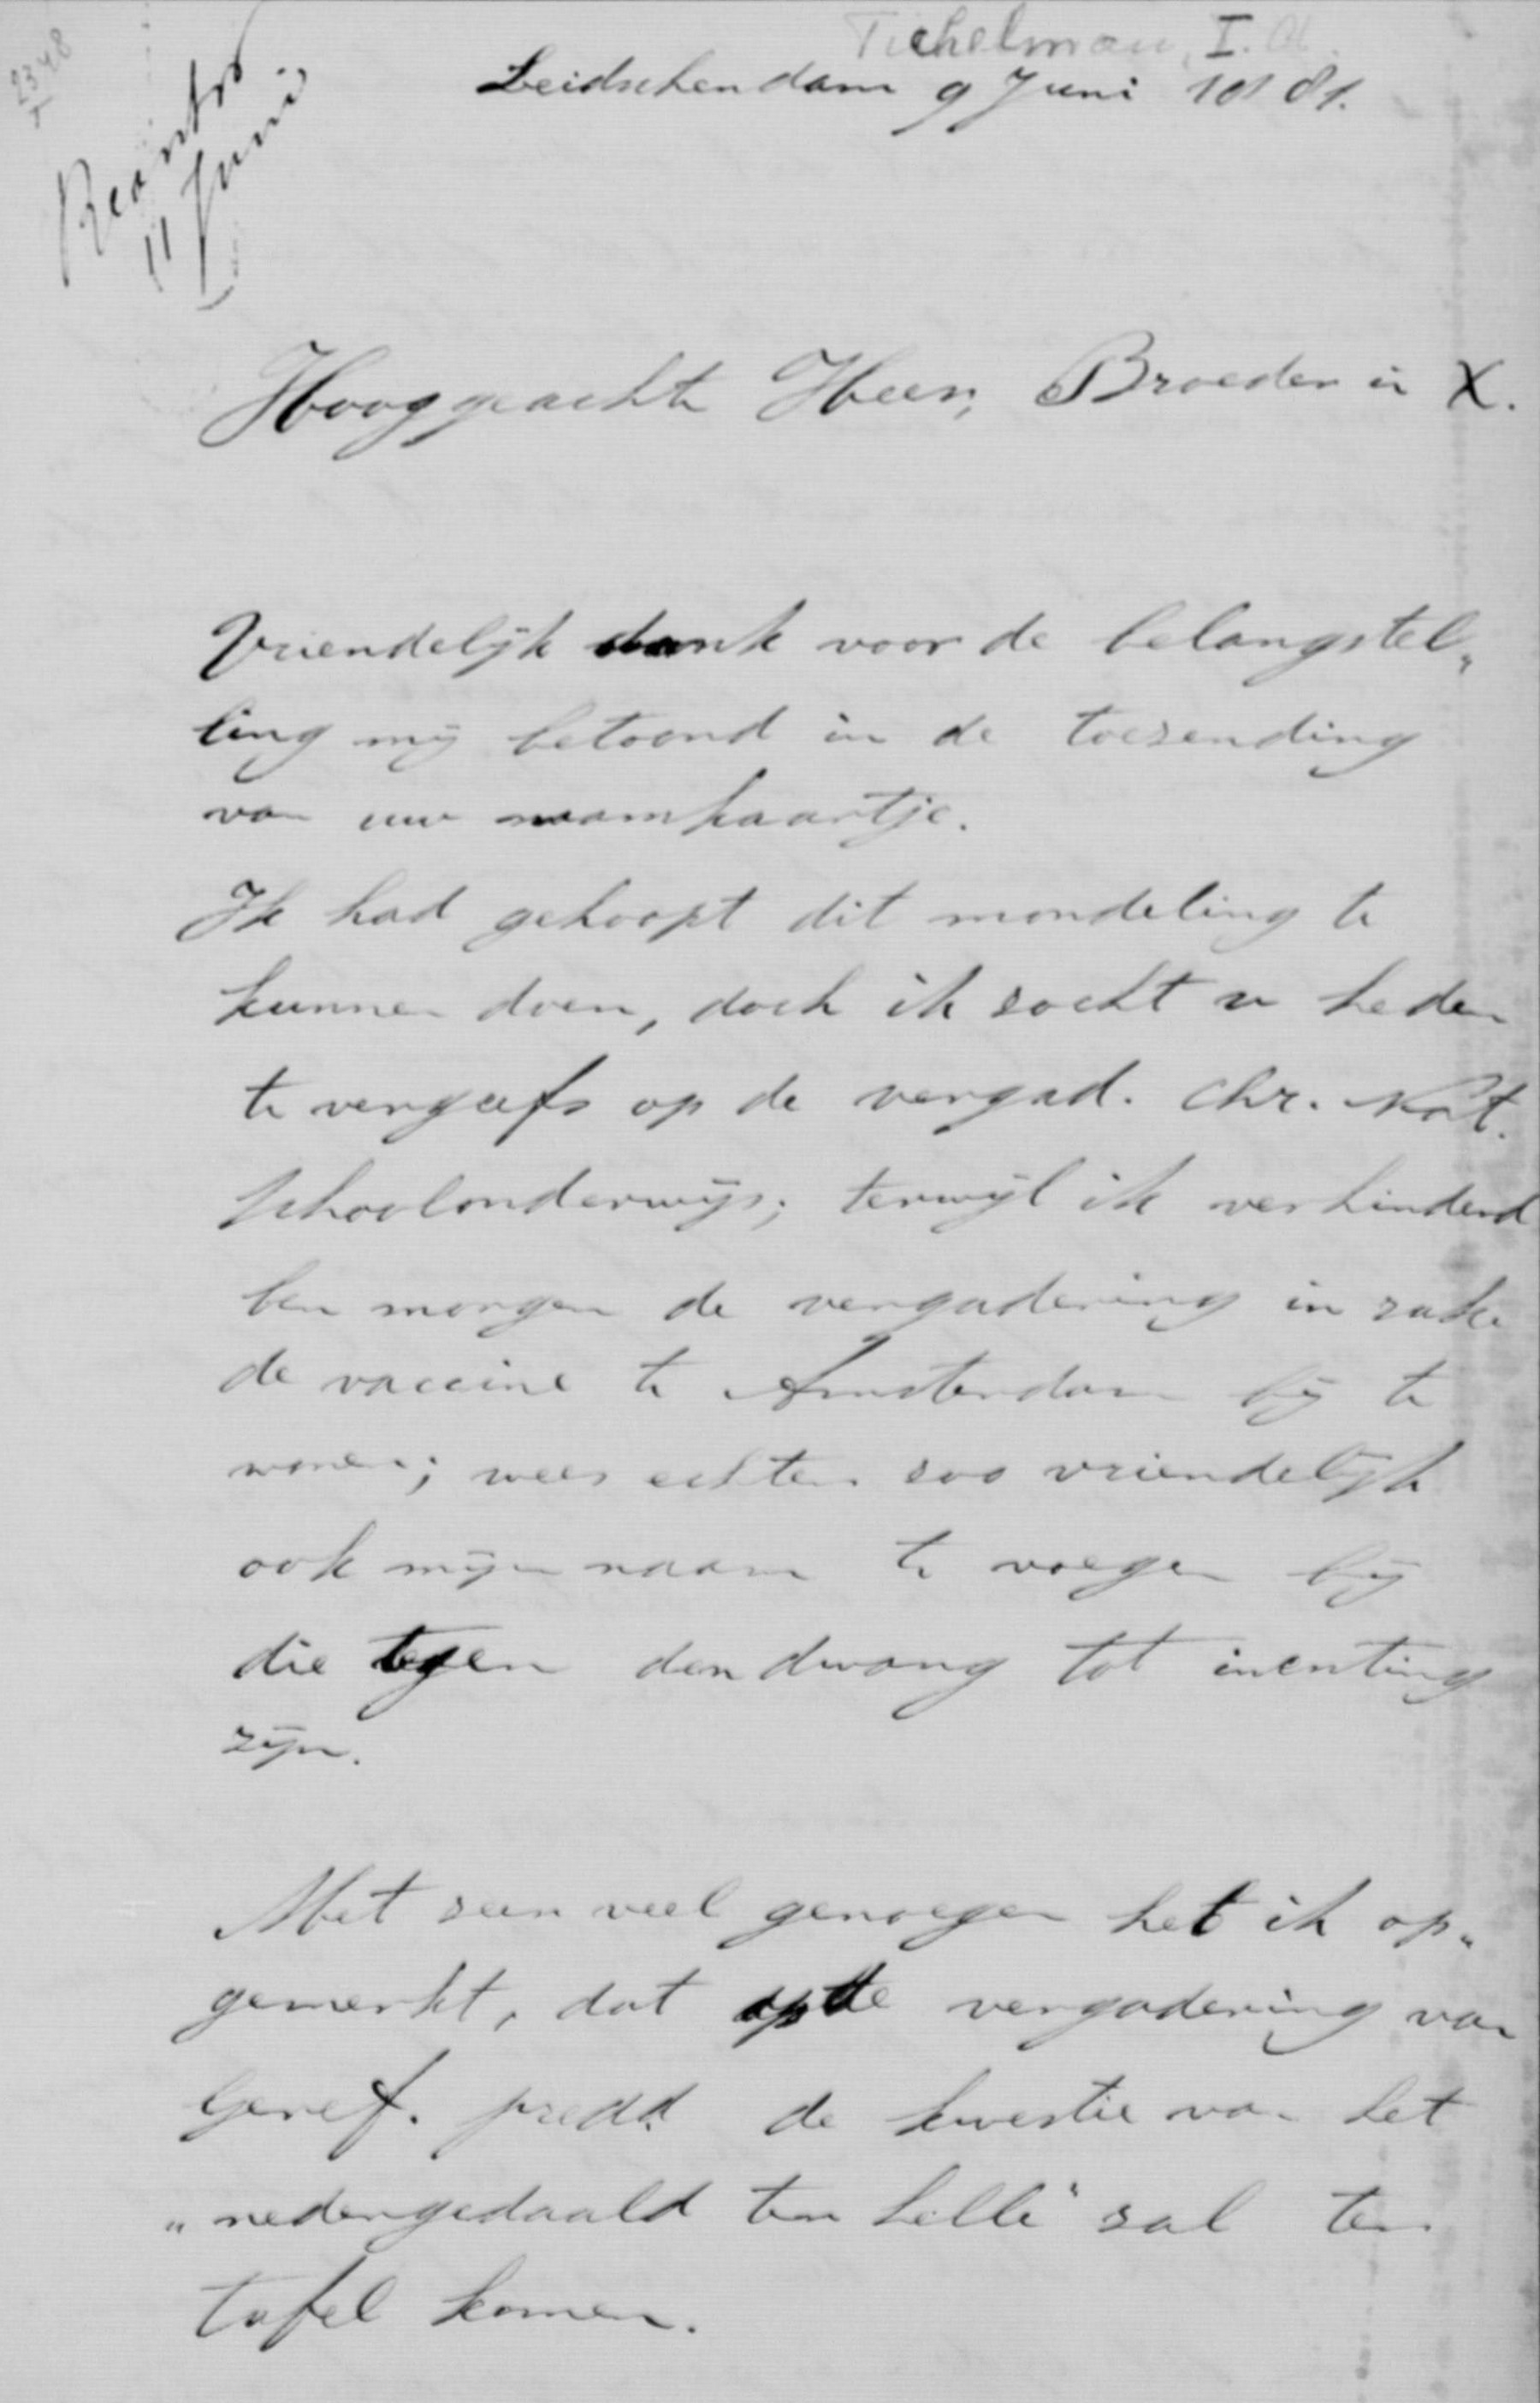 2348
Tichelman, I.
Leidschendam 9 Juni 1881.
Beantw.
11 Juni
Hooggeachte Heer, Broeder in X.
Vriendelijk dank voor de belangstel„
ling mij betoond in de toezending
van uw naamkaartje.
Ik had gehoopt dit mondeling te
kunnen doen, doch ik zocht u heden
te vergeefs op de vergad. Chr. Nat.
Schoolonderwijs; terwijl ik verhinderd
ben morgen de vergadering in zake
de vaccine te Amsterdam bij te
wonen; wees echter zoo vriendelijk
ook mijn naam te voegen bij
die tegen den dwang tot inenting
zijn.
Met zeer veel genoegen heb ik op„
gemerkt, dat op de vergadering van
Geref. predd. de kwestie van het
„nedergedaald ter helle" zal ter
tafel komen.